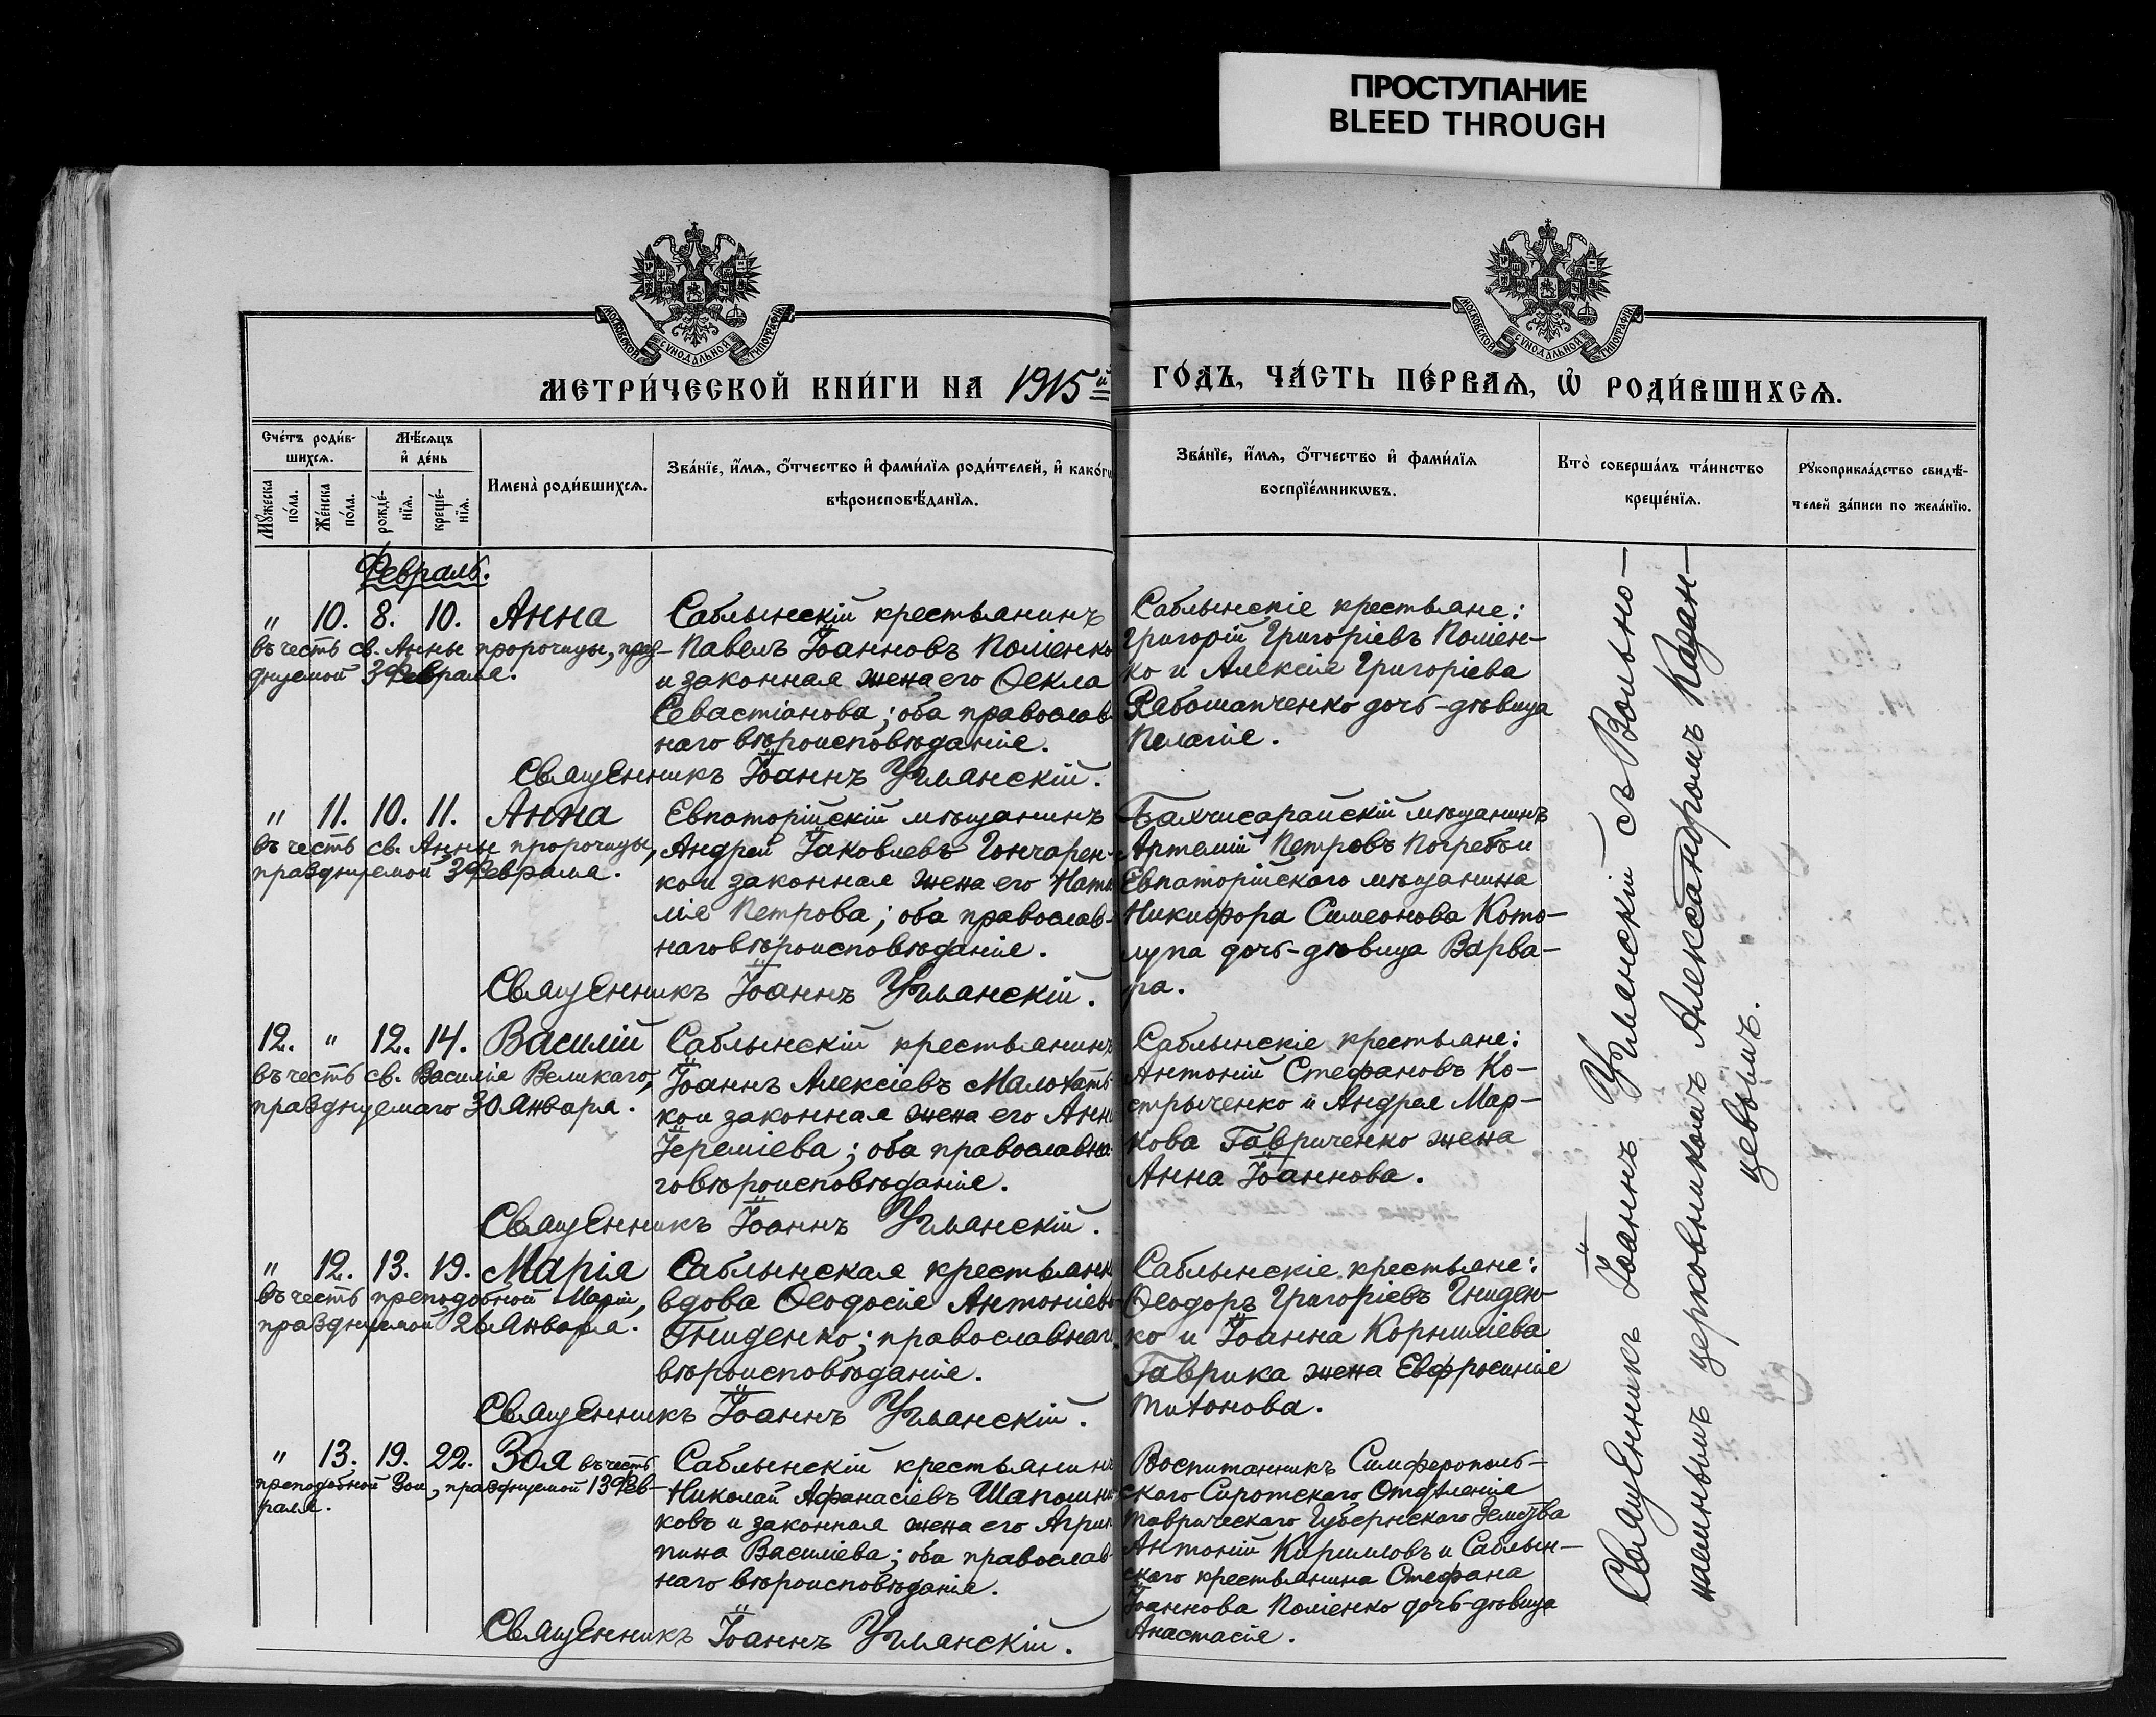 ПРОСТУПАНИЕ
BLEED THROUGH
МОСКОВСКОЙ СѴНОДАЛЬНОЙ ТИПОГРАФІИ
МОСКОВСКОЙ СѴНОДАЛЬНОЙ ТИПОГРАФІИ
МЕТРИ́ЧЕСКОЙ КНИ́ГИ НА 1915й ГО́ДЪ, ЧА́СТЬ ПЕ́РВАѦ, Ѽ РОДИ́ВШИХСѦ.
Счéтъ роди́в-
шихсѧ.
Мѣ́сѧцъ
и҆ де́нь
Мꙋ́жеска
по́ла.
Же́нска
по́ла.
рожде́-
нїѧ.
креще́-
нїѧ.
Имена̀ роди́вшихсѧ.
Зва́нїе, и҆́мѧ, ѻ҆́тчество и҆ фами́лїѧ роди́телей, и҆ како́гѡ
вѣроисповѣ́данїѧ.
Зва́нїе, и҆́мѧ, ѻ҆́тчество и҆ фами́лїѧ
воспрїе́мникѡвъ.
Кто̀ соверша́лъ та́инство
креще́нїѧ.
Рꙋкоприкла́дство свидѣ́-
телей за́писи по жела́нїю.
Февраль.
" 10. 8. 10. Анна
въ честь св. Анны пророчицы, празд-
днуемой 3 Февраля.
Саблынскій крестьянинъ
Павелъ Іоанновъ Поліенко
и законная жена его Ѳекла
Севастіанова; оба православ-
наго вѣроисповѣданія.
Священникъ Іоаннъ Углянскій.
Саблынскіе крестьяне:
Григорій Григоріевъ Поліен-
ко и Алексія Григоріева
Рабошапченко дочь-дѣвица
Пелагія.
" 11. 10. 11. Анна
въ честь св. Анны пророчицы,
празднуемой 3 Февраля.
Евпаторійскій мѣщанинъ
Андрей Іаковлевъ Гончарен-
ко и законная жена его Ната
лія Петрова; оба православ-
наго вѣроисповѣданія.
Священникъ Іоаннъ Углянскій.
Бахчисарайскій мѣщанинъ
Артемій Петровъ Погребъ и
Евпаторійскаго мѣщанина
Никифора Симеонова Кото-
лупа дочь-дѣвица Варва-
ра.
12. " 12. 14. Василій
въ честь св. Василія Великаго,
празднуемаго 30 Января.
Саблынскій крестьянинъ
Іоаннъ Алексіевъ Малохать
ко и законная жена его Анна
Іереміева; оба православна
го вѣроисповѣданія.
Священникъ Іоаннъ Углянскій.
Саблынскіе крестьяне:
Антоній Стефановъ Ко-
стрыченко и Андрея Мар-
кова Гавриченко жена
Анна Іоаннова.
" 12. 13. 19. Марія
въ честь преподобной Маріи,
празднуемой 26 Января.
Саблынская крестьянка
вдова Ѳеодосія Антоніева
Гниденко; православнаго
вѣроисповѣданія.
Священникъ Іоаннъ Углянскій.
Саблынскіе крестьяне:
Ѳеодоръ Григоріевъ Гниден-
ко и Іоанна Корниліева
Гаврика жена Евфросинія
Тихонова.
" 13. 19. 22. Зоя въ честь
преподобной Зои, празднуемой 13 Фев-
раля.
Саблынскій крестьянинъ
Николай Афанасіевъ Шапошни
ковъ и законная жена его Агрип
пина Василіева; оба православ-
наго вѣроисповѣданія.
Священникъ Іоаннъ Углянскій.
Воспитанникъ Симферополь-
скаго Сиротскаго Отдѣленія
Таврическаго Губернскаго Земства
Антоній Кирилловъ и Саблын-
скаго крестьянина Стефана
Іоаннова Поліенко дочь-дѣвица
Анастасія.
Священникъ Іоаннъ Углянскій съ Вольно-
наемнымъ церковникомъ Александромъ Казан-
цевымъ.